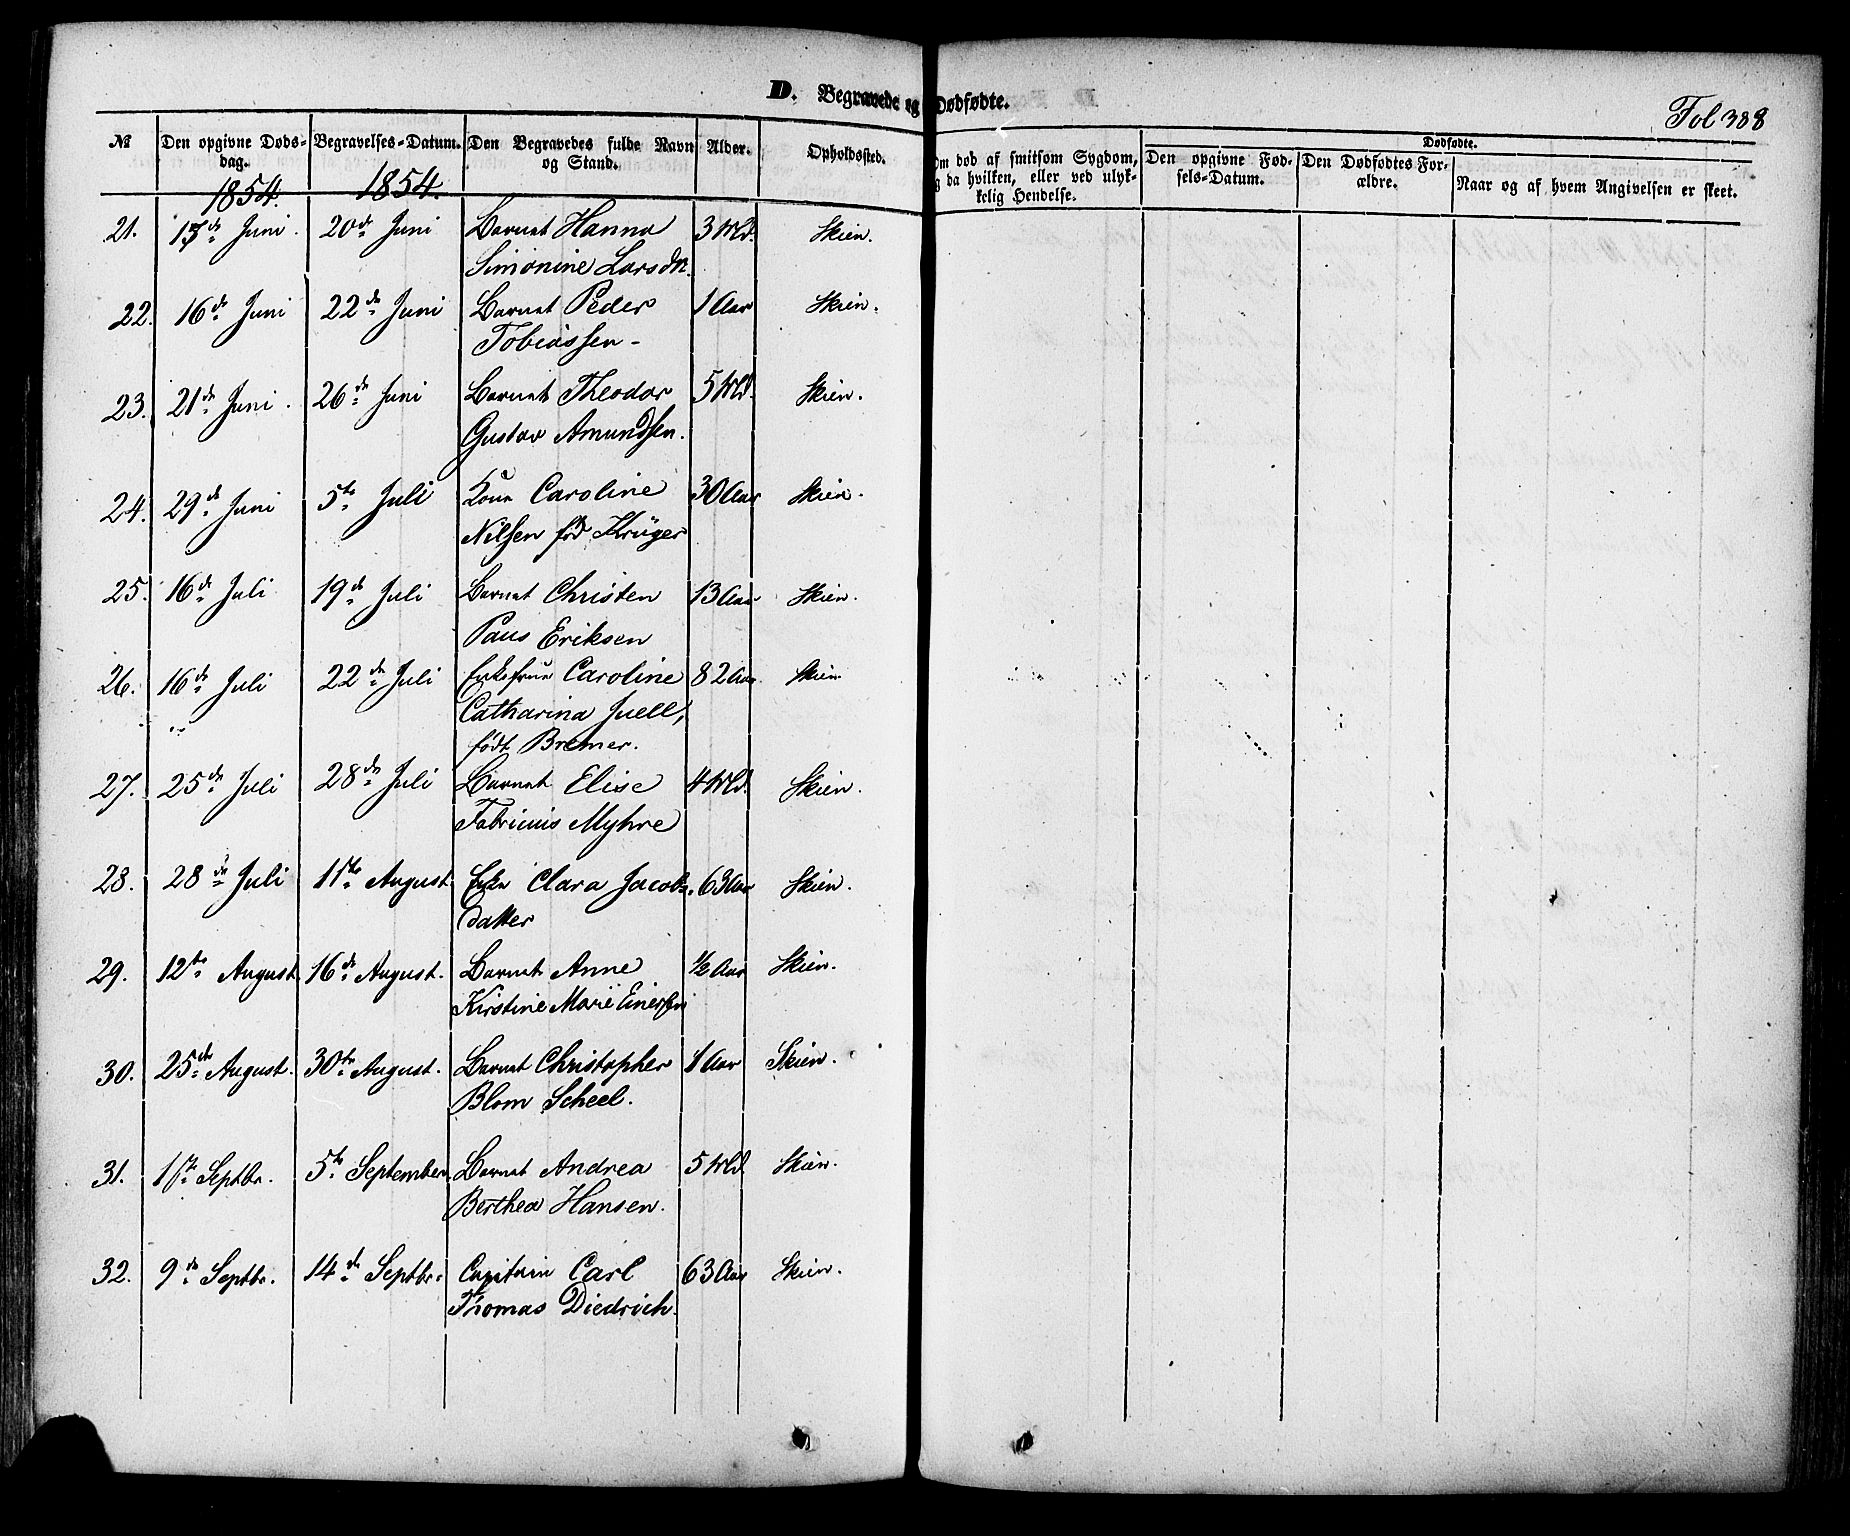 D. Begravede og Dødfødte.
Fol 388
№ Den opgivne Døds- Begravelses-Datum. Den Begravedes fulde Navn Alder. Opholdssted. Om død af smitsom Sygdom, Den opgivne Fød- Den Dødfødtes For- Dødfødte.
dag. og Stand. og da hvilken, eller ved ulyk- sels-Datum. ældre. Naar og af hvem Angivelsen er skeet.
kelig Hendelse.
1854. 1854.
21. 15de Juni. 20de Juni Barnet Hanna 3 Md. Skien.
Simonine Larsdr.
22. 16de Juni 22de Juni Barnet Peder 1 Aar Skien.
Tobiassen-
23. 21de Juni. 26de Juni Barnet Theodor 5 Md. Skien.
Gustav Amundsen.
24. 29de Juni 5te Juli Kone Caroline 30 Aar Skien.
Nilsen fød Krüger
25. 16de Juli 19de Juli Barnet Christen 13 Aar Skien.
Paus Eriksen
26. 16de Juli 22de Juli Enkefrue Caroline 82 Aar Skien
Catharina Juell,
født Bremer.
27. 25de Juli 28de Juli Barnet Elise 4 Md. Skien.
Fabricius Myhre
28. 28de Juli 1ste August Enke Clara Jacobs- 63 Aar Skien.
datter
29. 12te August 16de August. Barnet Anne ½ Aar Skien.
Kirstine Marie Einersen
30. 25de August. 30te August. Barnet Christopher 1 Aar Skien.
Blom Scheel.
31. 1ste Septbr. 5te September Barnet Andrea 5 Md. Skien.
Berthea Hansen.
32. 9de Septbr. 14de Septbr. Capitain Carl 63 Aar Skien.
Thomas Diedrich.